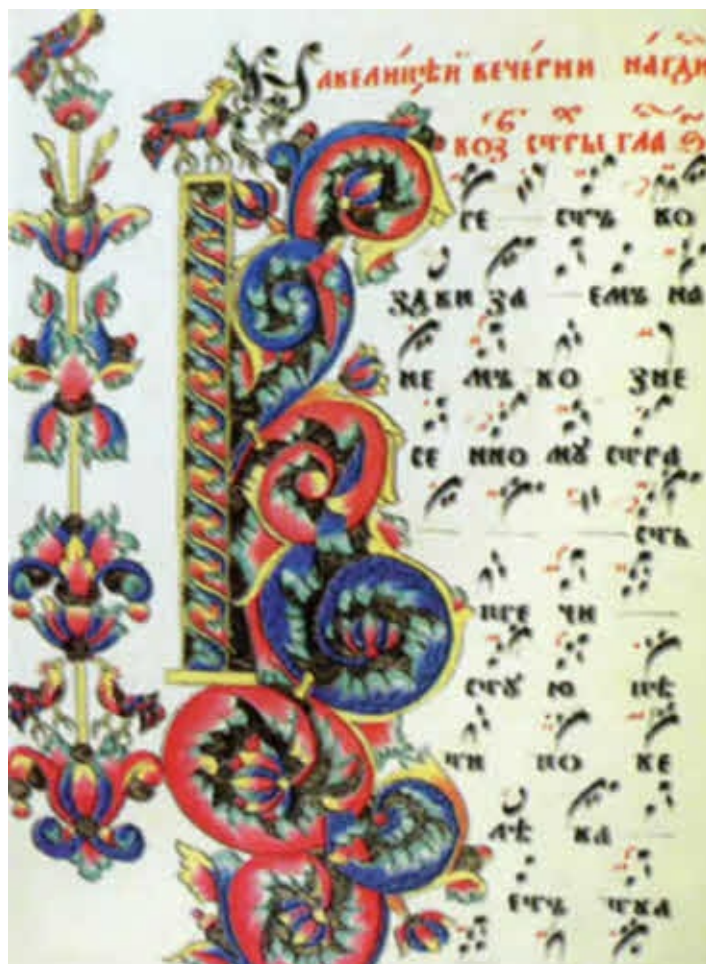 АВЕЛИЦѢЙ ВЕЧЕРНИ НАГДИ
ВОЗ СТРЫ ГЛА
РЕ СТЪ ВО
ЗДВИ ЗА ЕМЪ НА
НЕ МЪ ВО ЗНЕ
СЕ ННО МꙊ СТРА
СТЬ
ПРЕ ЧИ
СТꙊ Ю ПѢ
ТИ ПО ВЕ
ЛѢ ВА
ЕТЪ ТВА